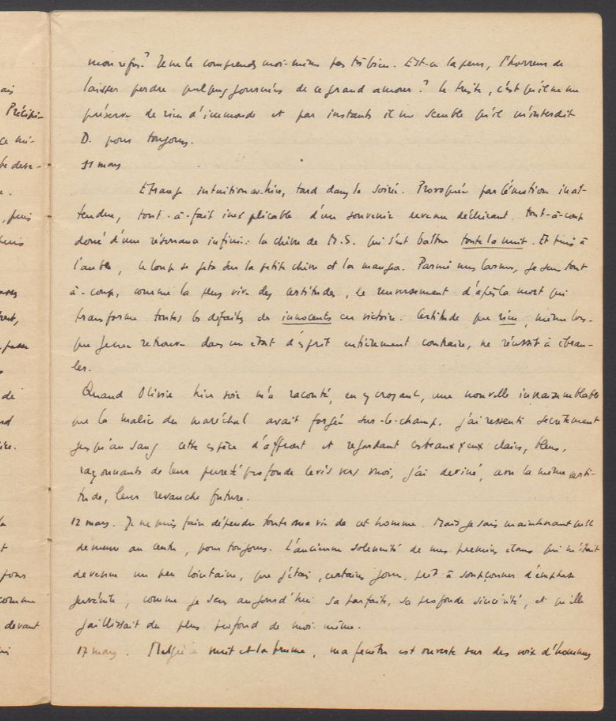 ais
Précipi-
ce mi-
, puis
de
comme
devant
mon refus? Je ne le comprends moi-même pas très bien. Est-ce la peur, l'horreur de
laisser perdre quelques journées de ce grand amour? Le traite, c'est qu'il me
préserve de rien d'immonde et par instants il me semble qu'il m'interdit
D. pour toujours.
11 mars
Etrange intuition hier, tard dans la soirée. Provoquée par l'émotion inat-
tendue, tout-à-fait inexplicable d'un souvenir revenu déchirant tout-à-coup
doré d'une résonance infinie: la chèvre de M.S. qui s'est battue toute la nuit. Et puis à
l'aube, le loup se jeta sur la petite chèvre et la mangea. Parmi mes larmes, je sens tout
à-coup, comme la plus vive des certitudes, le renversement d'après la mort qui
transforme toutes les défaites des innocents en victoire. Certitude que rien, même lors-
que je me retrouve dans un état d'esprit entièrement contraire, ne réussit à ébran-
ler.
Quand Olivia hier soir m'a raconté, en y croyant, une nouvelle invraisemblable
que la malice du maréchal avait forgée sur-le-champ, j'ai ressenti secrètement
jusqu'au sang cette espèce d'affront et regardant ces beaux yeux clairs, bleus,
rayonnants de leur pureté profonde levés vers moi, j'ai deviné, avec la même certi-
tude, leur revanche future.
12 mars. Je ne puis faire dépendre toute ma vie de cet homme. Mais je sais maintenant qu'il
demeure au centre, pour toujours. L'ancienne solennité de mes premiers élans qui m'était
devenue un peu lointaine, que j'étais, certains jours, prêt à soupçonner d'emphase
juvénile, comme je sens aujourd'hui sa parfaite, sa profonde sincérité, et qu'elle
jaillissait du plus profond de moi-même.
17 mars. Malgré nuit et la brume, ma fenêtre est ouverte sur des voix d'hommes